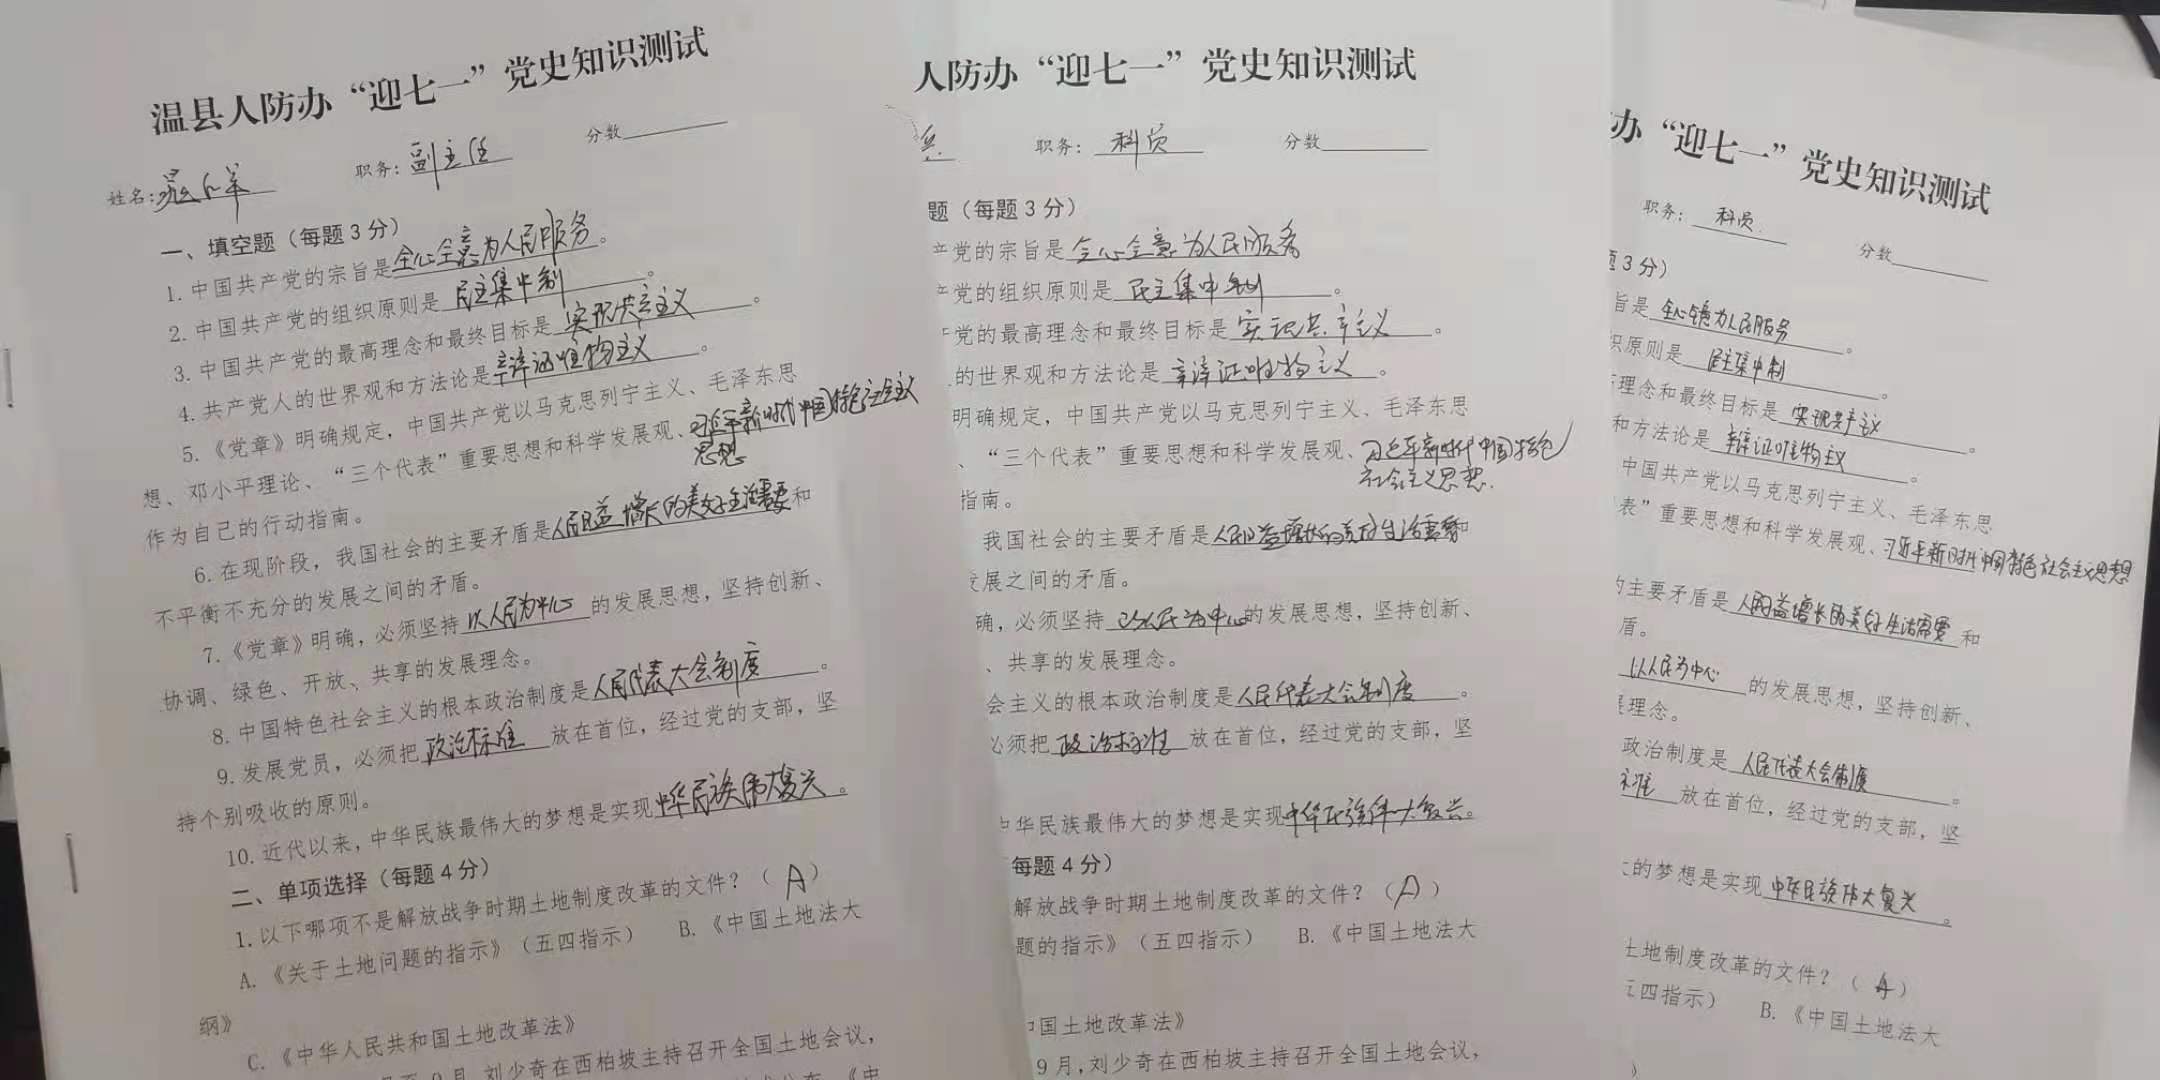 温县人防办“迎七一”党史知识测试
姓名: 职务:副主任 分数
一、填空题（每题3分）
1.中国共产党的宗旨是全心全意为人民服务。
2.中国共产党的组织原则是民主集中制。
3.中国共产党的最高理念和最终目标是实现共产主义。
4.共产党人的世界观和方法论是辩证唯物主义。
5.《党章》明确规定，中国共产党以马克思列宁主义、毛泽东思
想、邓小平理论、“三个代表”重要思想和科学发展观、习近平新时代中国特色社会主义
思想
作为自己的行动指南。
6.在现阶段，我国社会的主要矛盾是人民日益增长的美好生活需要和
不平衡不充分的发展之间的矛盾。
7.《党章》明确，必须坚持以人民为中心的发展思想，坚持创新、
协调、绿色、开放、共享的发展理念。
8.中国特色社会主义的根本政治制度是人民代表大会制度。
9.发展党员，必须把政治标准放在首位，经过党的支部，坚
持个别吸收的原则。
10.近代以来，中华民族最伟大的梦想是实现中华民族伟大复兴。
二、单项选择（每题4分）
1.以下哪项不是解放战争时期土地制度改革的文件？（A）
A.《关于土地问题的指示》（五四指示） B.《中国土地法大
纲》
C.《中华人民共和国土地改革法》
9月，刘少奇在西柏坡主持召开全国土地会议，
人防办“迎七一”党史知识测试
职务：科员 分数
题（每题3分）
产党的宗旨是全心全意为人民服务
产党的组织原则是民主集中制。
产党的最高理念和最终目标是实现共产主义。
的世界观和方法论是辩证唯物主义。
明确规定，中国共产党以马克思列宁主义、毛泽东思
、“三个代表”重要思想和科学发展观、习近平新时代中国特色
社会主义思想.
指南。
我国社会的主要矛盾是人民日益增长的美好生活需要和
发展之间的矛盾。
确，必须坚持以人民为中心的发展思想，坚持创新、
、共享的发展理念。
会主义的根本政治制度是人民代表大会制度。
必须把政治标准放在首位，经过党的支部，坚
中华民族最伟大的梦想是实现中华民族伟大复兴。
每题4分）
解放战争时期土地制度改革的文件？（A）
题的指示》（五四指示） B.《中国土地法大
中国土地改革法》
9月，刘少奇在西柏坡主持召开全国土地会议，
办“迎七一”党史知识测试
职务：科员 分数
题3分）
旨是全心全意为人民服务。
织原则是民主集中制。
理念和最终目标是实现共产主义。
和方法论是辩证唯物主义。
中国共产党以马克思列宁主义、毛泽东思
表”重要思想和科学发展观、习近平新时代中国特色社会主义思想
的主要矛盾是人民日益增长的美好生活需要和
盾。
以人民为中心的发展思想，坚持创新、
展理念。
政治制度是人民代表大会制度。
标准放在首位，经过党的支部，坚
大的梦想是实现中华民族伟大复兴。
土地制度改革的文件？（A）
五四指示） B.《中国土地法大
》